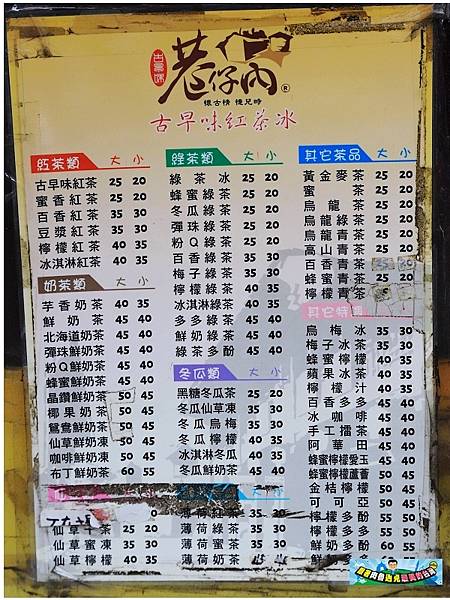 古早味
巷仔內®
懷古情 憶兒時
古早味紅茶冰
紅茶類 大 小
古早味紅茶 25 20
蜜香紅茶 25 20
百香紅茶 35 30
豆漿紅茶 35 30
檸檬紅茶 40 35
冰淇淋紅茶 40 35
奶茶類 大 小
芋香奶茶 40 35
鮮奶茶 45 40
北海道奶茶 45 40
彈珠鮮奶茶 45 40
粉Q鮮奶茶 45 40
蜂蜜鮮奶茶 50 45
晶鑽鮮奶茶 50 45
椰果奶茶 50 45
鴛鴦鮮奶茶 50 45
仙草鮮奶凍 50 45
咖啡鮮奶凍 50 45
布丁鮮奶茶 60 55
仙草干茶 25 20
仙草蜜凍 35 30
仙草檸檬 40 35
綠茶類 大 小
綠茶冰 25 20
蜂蜜綠茶 25 20
冬瓜綠茶 25 20
彈珠綠茶 25 20
粉Q綠茶 25 20
百香綠茶 35 30
梅子綠茶 35 30
檸檬綠茶 40 35
冰淇淋綠茶 40 35
多多綠茶 45 40
鮮奶綠茶 45 40
綠茶多酚 45 40
冬瓜類 大 小
黑糖冬瓜茶 25 20
冬瓜仙草凍 25 20
冬瓜烏梅 35 30
冬瓜檸檬 40 35
冰淇淋冬瓜 40 35
冬瓜鮮奶茶 45 40
薄荷紅茶 35 30
薄荷綠茶 35 30
薄荷蜜茶 35 30
薄荷奶茶 40 35
其它茶品 大 小
黃金麥茶 25 20
蜜茶 25 20
烏龍茶 25 20
烏龍綠茶 25 20
烏龍青茶 25 20
高山青茶 25 20
百香青茶
蜂蜜青茶 25 20
檸檬青茶
其它特調
烏梅冰 35 30
梅子冰茶 35 30
蜂蜜檸檬 40 35
蘋果冰茶 40 35
檸檬汁 40 35
百香多多 45 40
冰咖啡 45 40
手工擂茶 45 40
阿華田 45 40
蜂蜜檸檬愛玉 45 40
蜂蜜檸檬蘆薈 50 45
金桔檸檬 50 45
可可亞 50 45
檸檬多多 55 50
檸檬多酚 55 50
鮮奶多酚 60
鮮奶多多